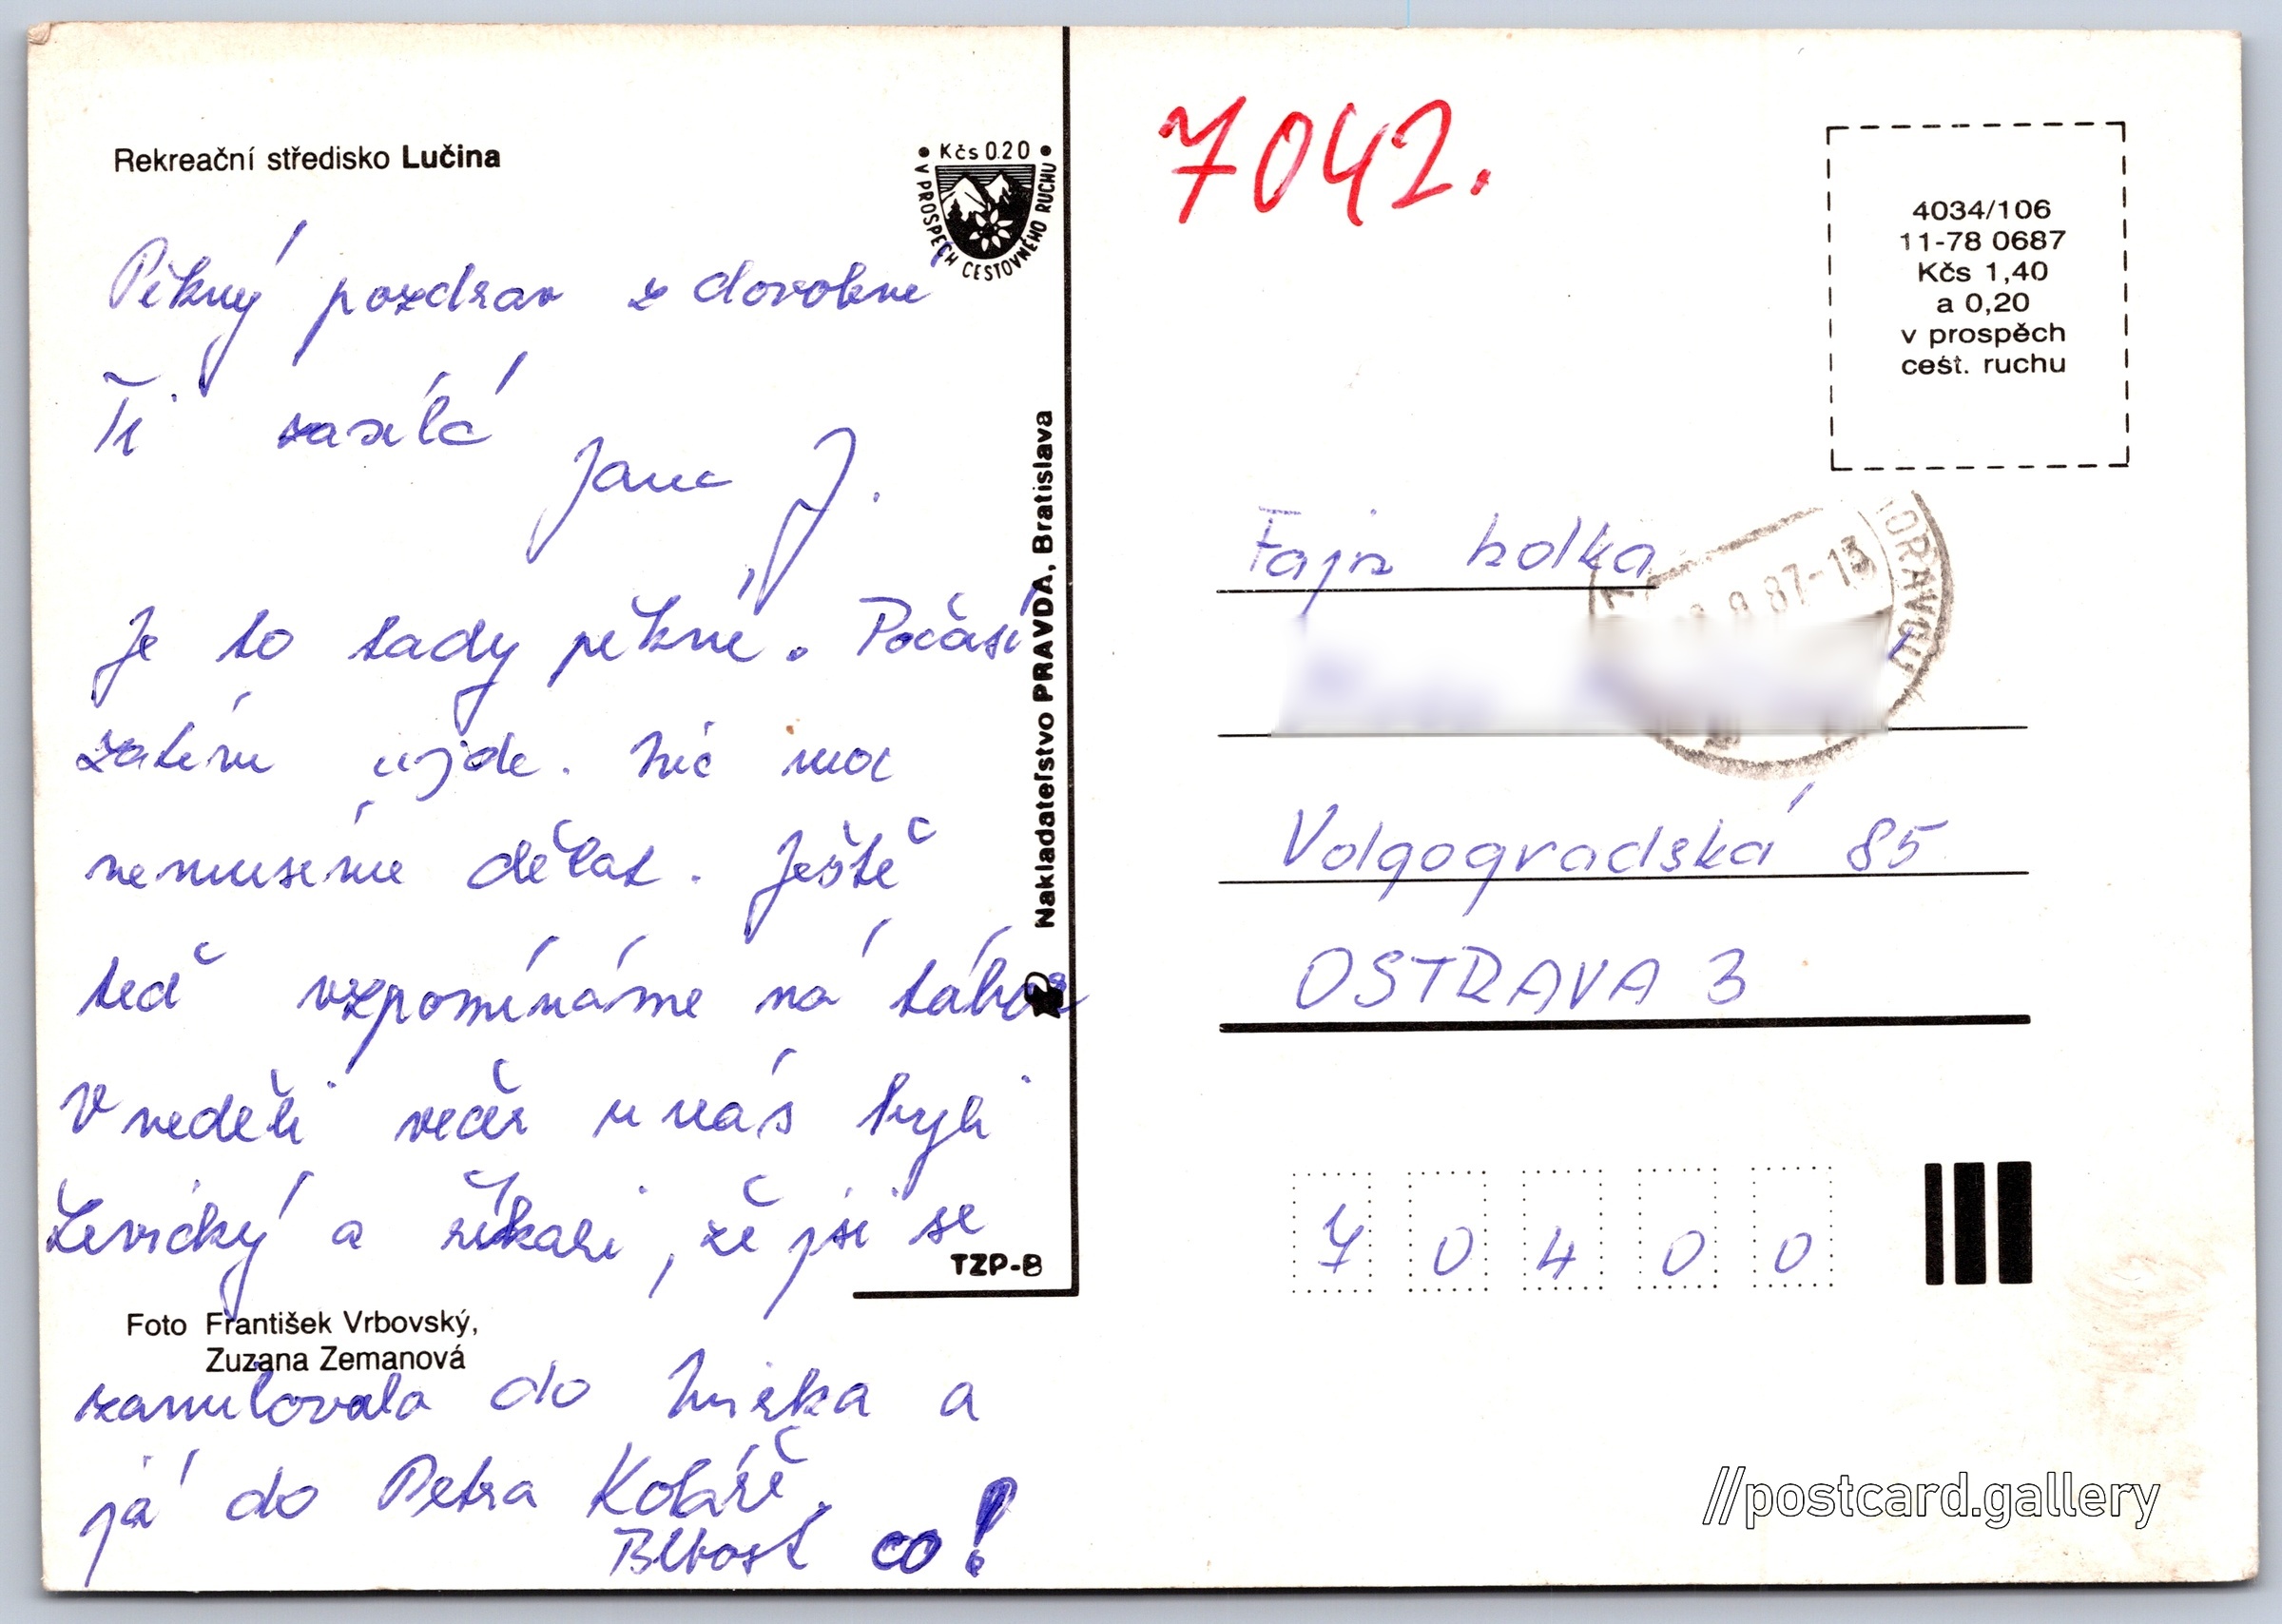 Rekreační středisko Lučina
• Kčs 0.20 •
V PROSPĚCH CESTOVNÉHO RUCHU
Pěkný pozdrav z dovolené
Ti zasílá
Jana J.
Je to tady pěkné. Počasí
zatím ujde. Nic moc
nemusíme dělat. Ještě
teď vzpomínáme na tábor
V neděli večer u nás byli
a říkali, že jsi se
TZP-B
Foto František Vrbovský,
Zuzana Zemanová
zamilovala do Mirka a
já do Petra Koláře.
Blbost co!
Nakladateľstvo PRAVDA, Bratislava
7042.
4034/106
11-78 0687
Kčs 1,40
a 0,20
v prospěch
cest. ruchu
87-13
Fajn holka
Volgogradská 85
OSTRAVA 3
7 0 4 0 0
//postcard.gallery